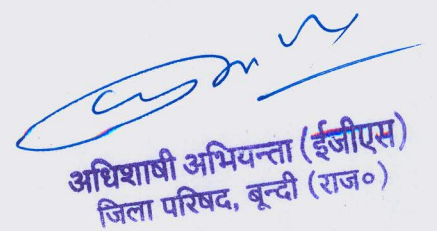 अधिशाषी अभियन्ता (ईजीएस)
जिला परिषद, बून्दी (राज०)